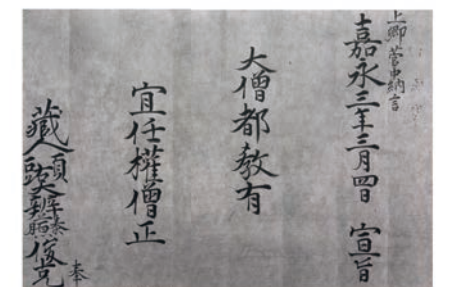 上卿 菅中納言
嘉永三年三月四日 宣旨
大僧都教有
宜任權僧正
藏人頭 辨 俊克 奉